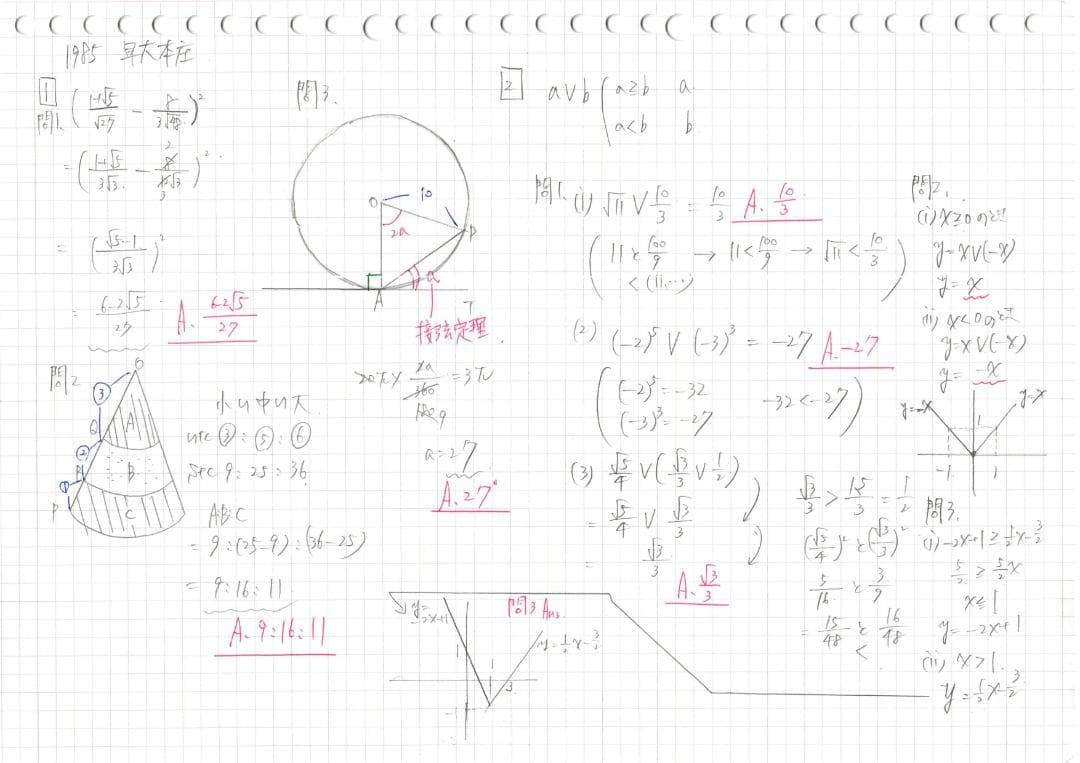 1985 早大本庄
1
問1. ( (1+√5)/√27 − 8/(3√48) )²
= ( (1+√5)/(3√3) − 8/(12√3) )²
2
3
= ( (√5−1)/(3√3) )²
= (6−2√5)/27
A. (6−2√5)/27
問2
O
③
Q
②
R
①
P
A
B
C
小 中 大
③:⑤:⑥
9:25:36
A:B:C
= 9:(25−9):(36−25)
= 9:16:11
A. 9:16:11
問3.
O
10
2a
B
a
A
T
接弦定理
20π × 2a/360 = 3π
9
a=27
A. 27°
2
a∨b
a≧b a
a<b b
問1. (1) √11 ∨ 10/3 = 10/3 A. 10/3
( 11と100/9 → 11<100/9 → √11<10/3 )
< (11,...)
(2) (−2)⁵ ∨ (−3)³ = −27 A. −27
( (−2)⁵=−32
(−3)³=−27 −32<−27 )
(3) √5/4 ∨ (√3/3 ∨ 1/2)
= √5/4 ∨ √3/3
= √3/3
A. √3/3
√3/3 > 1.5/3 = 1/2
(√5/4)² と (√3/3)²
5/16 と 3/9
= 15/48 と 16/48
<
問2.
(i) x≧0のとき
y=x∨(−x)
y=x
(ii) x<0のとき
y=x∨(−x)
y=−x
y=−x
y=x
1
−1
1
問3.
(i) −2x+1≧1/2x−3/2
5/2≧5/2x
x≦1
y=−2x+1
(ii) x>1
y=1/2x−3/2
問3 Ans.
y=−2x+1
y=1/2x−3/2
1
1
3
−1